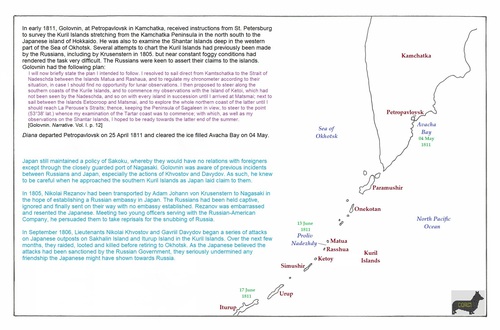 In early 1811, Golovnin, at Petropavlovsk in Kamchatka, received instructions from St. Petersburg
to survey the Kuril Islands stretching from the Kamchatka Peninsula in the north south to the
Japanese island of Hokkaido. He was also to examine the Shantar Islands deep in the western
part of the Sea of Okhotsk. Several attempts to chart the Kuril Islands had previously been made
by the Russians, including by Krusenstern in 1805, but near constant foggy conditions had
rendered the task very difficult. The Russians were keen to assert their claims to the islands.
Golovnin had the following plan:
I will now briefly state the plan I intended to follow. I resolved to sail direct from Kamtschatka to the Strait of
Nadeschda between the Islands Matua and Rashaua, and to regulate my chronometer according to their
situation, in case I should find no opportunity for lunar observations. I then proposed to steer along the
southern coasts of the Kurile Islands, and to commence my observations with the Island of Ketoi, which had
not been seen by the Nadeschda, and so on with every island in succession until I arrived at Matsmai; next to
sail between the Islands Eetooroop and Matsmai, and to explore the whole northern coast of the latter until I
should reach La Perouse's Straits; thence, keeping the Peninsula of Sagaleen in view, to steer to the point
(53°38' lat.) whence my examination of the Tartar coast was to commence; with which, as well as my
observations on the Shantar Islands, I hoped to be ready towards the latter end of the summer.
[Golovnin. Narrative. Vol. I. p. 12]
Diana departed Petropavlovsk on 25 April 1811 and cleared the ice filled Avacha Bay on 04 May.
Japan still maintained a policy of Sakoku, whereby they would have no relations with foreigners
except through the closely guarded port of Nagasaki. Golovnin was aware of previous incidents
between Russians and Japan, especially the actions of Khvostov and Davydov. As such, he knew
to be careful when he approached the southern Kuril Islands as Japan laid claim to them.
In 1805, Nikolai Rezanov had been transported by Adam Johann von Krusenstern to Nagasaki in
the hope of establishing a Russian embassy in Japan. The Russians had been held captive,
ignored and finally sent on their way with no embassy established. Rezanov was embarrassed
and resented the Japanese. Meeting two young officers serving with the Russian-American
Company, he persuaded them to take reprisals for the snubbing of Russia.
In September 1806, Lieutenants Nikolai Khvostov and Gavriil Davydov began a series of attacks
on Japanese outposts on Sakhalin Island and Iturup Island in the Kuril Islands. Over the next few
months, they raided, looted and killed before retiring to Okhotsk. As the Japanese believed the
attacks had been sanctioned by the Russian Government, they seriously undermined any
friendship the Japanese might have shown towards Russia.
Kamchatka
Petropavlovsk
Avacha
Bay
04 May
1811
Sea of
Okhotsk
Paramushir
Onekotan
North Pacific
Ocean
13 June
1811
Proliv
Nadezhdy
Matua
Rasshua
Ketoy
Kuril
Islands
Simushir
17 June
1811
Urup
Iturup